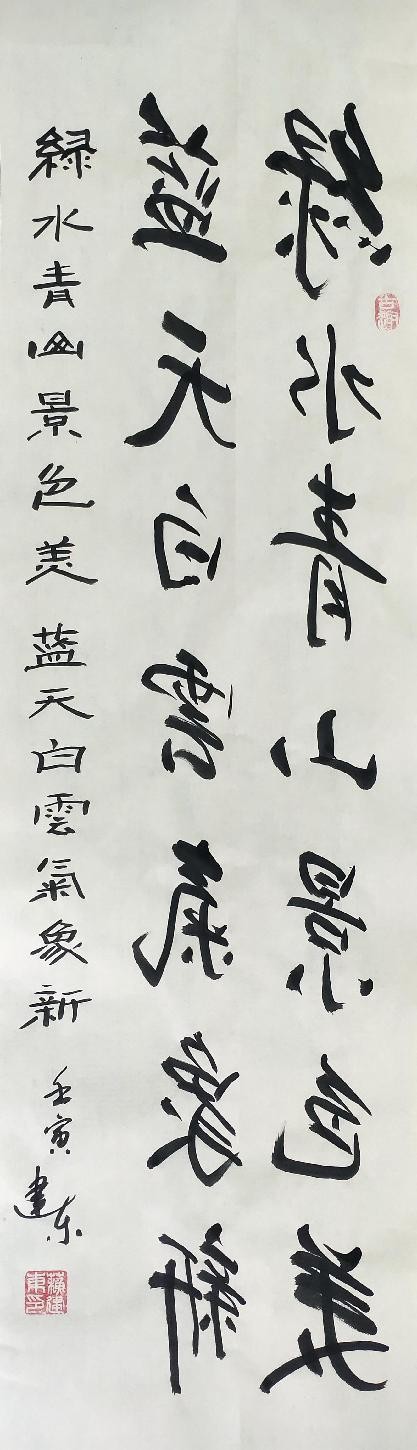 綠水青山景色美
藍天白雲氣象新
綠水青山景色美 藍天白雲氣象新
壬寅 建东